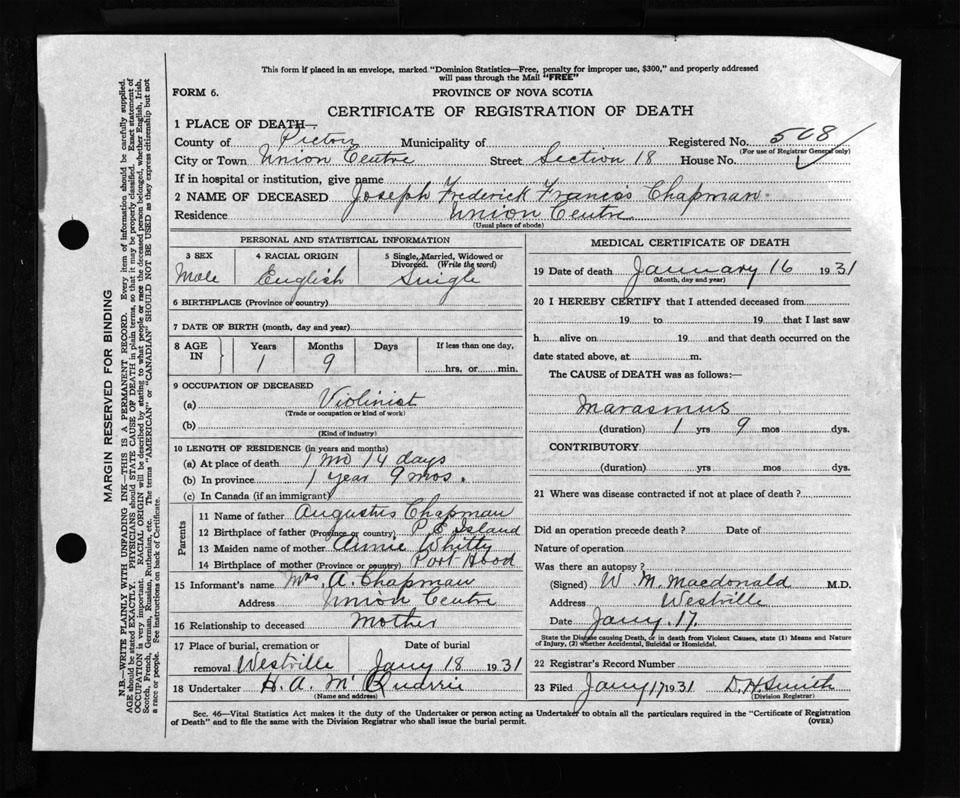 This form if placed in an envelope, marked "Dominion Statistics—Free, penalty for improper use, $300," and properly addressed
will pass through the Mail "FREE"
FORM 6.
PROVINCE OF NOVA SCOTIA
CERTIFICATE OF REGISTRATION OF DEATH
1 PLACE OF DEATH—
County of Pictou Municipality of Registered No. 508
(For use of Registrar General only)
City or Town Union Centre Street Section 18 House No.
If in hospital or institution, give name
2 NAME OF DECEASED Joseph Frederick Francis Chapman
Residence Union Centre
(Usual place of abode)
PERSONAL AND STATISTICAL INFORMATION
3 SEX 4 RACIAL ORIGIN 5 Single, Married, Widowed or
Divorced. (Write the word)
Male English Single
6 BIRTHPLACE (Province or country)
7 DATE OF BIRTH (month, day and year)
8 AGE IN Years Months Days If less than one day,
1 9 hrs. or min.
9 OCCUPATION OF DECEASED
(a) Violinist
(Trade or occupation or kind of work)
(b)
(Kind of industry)
10 LENGTH OF RESIDENCE (in years and months)
(a) At place of death 1 mo 14 days
(b) In province 1 year 9 mos.
(c) In Canada (if an immigrant)
Parents
11 Name of father Augustus Chapman
12 Birthplace of father (Province or country) P E Island
13 Maiden name of mother Annie Whitty
14 Birthplace of mother (Province or country) Port Hood
15 Informant's name Mrs A. Chapman
Address Union Centre
16 Relationship to deceased Mother
17 Place of burial, cremation or Date of burial
removal Westville Jany 18 1931
18 Undertaker H. A. McQuarrie
(Name and address)
MEDICAL CERTIFICATE OF DEATH
19 Date of death January 16 1931
(Month, day and year)
20 I HEREBY CERTIFY that I attended deceased from
19 to 19 that I last saw
h alive on 19 and that death occurred on the
date stated above, at m.
The CAUSE of DEATH was as follows:—
Marasmus
(duration) 1 yrs 9 mos dys.
CONTRIBUTORY
(duration) yrs. mos. dys.
21 Where was disease contracted if not at place of death?
Did an operation precede death? Date of
Nature of operation
Was there an autopsy?
(Signed) W. M. Macdonald M.D.
Address Westville
Date Jany. 17.
State the Disease causing Death, or in death from Violent Causes, state (1) Means and Nature
of Injury, (2) whether Accidental, Suicidal or Homicidal.
22 Registrar's Record Number
23 Filed Jany 17 1931 D. H. Smith
(Division Registrar)
Sec. 46—Vital Statistics Act makes it the duty of the Undertaker or person acting as Undertaker to obtain all the particulars required in the "Certificate of Registration
of Death" and to file the same with the Division Registrar who shall issue the burial permit.
(OVER)
MARGIN RESERVED FOR BINDING
N.B.—WRITE PLAINLY WITH UNFADING INK—THIS IS A PERMANENT RECORD. Every item of information should be carefully supplied.
AGE should be stated EXACTLY. PHYSICIANS should STATE CAUSE OF DEATH in plain terms, so that it may be properly classified. Exact statement of
OCCUPATION is very important. RACIAL ORIGIN will be described by stating to what people or race the deceased person belonged, whether English, Irish,
Scotch, French, German, Russian, Ruthenian, etc. The terms "AMERICAN" or "CANADIAN" SHOULD NOT BE USED as they express citizenship but not
a race or people. See instructions on back of Certificate.